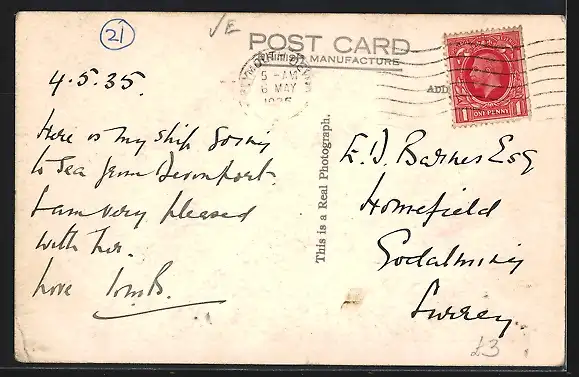 21
√E
POST CARD
MANUFACTURE
5 - AM
6 MAY
1935
ONE PENNY
1 1
ADD
4.5.35.
Here is my ship going
to sea from Devonport.
I am very pleased
with her.
Love
This is a Real Photograph.
E.J. Barnes Esq
Homefield
Godalming
Surrey
£3